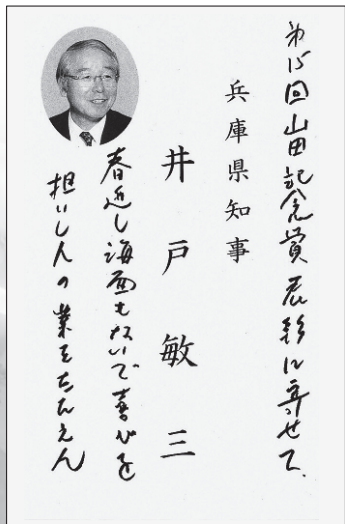 第15回山田記念賞表彰に寄せて、
兵庫県知事
井戸敏三
春近し海面もないで喜びを
担いし人の業をたたえん